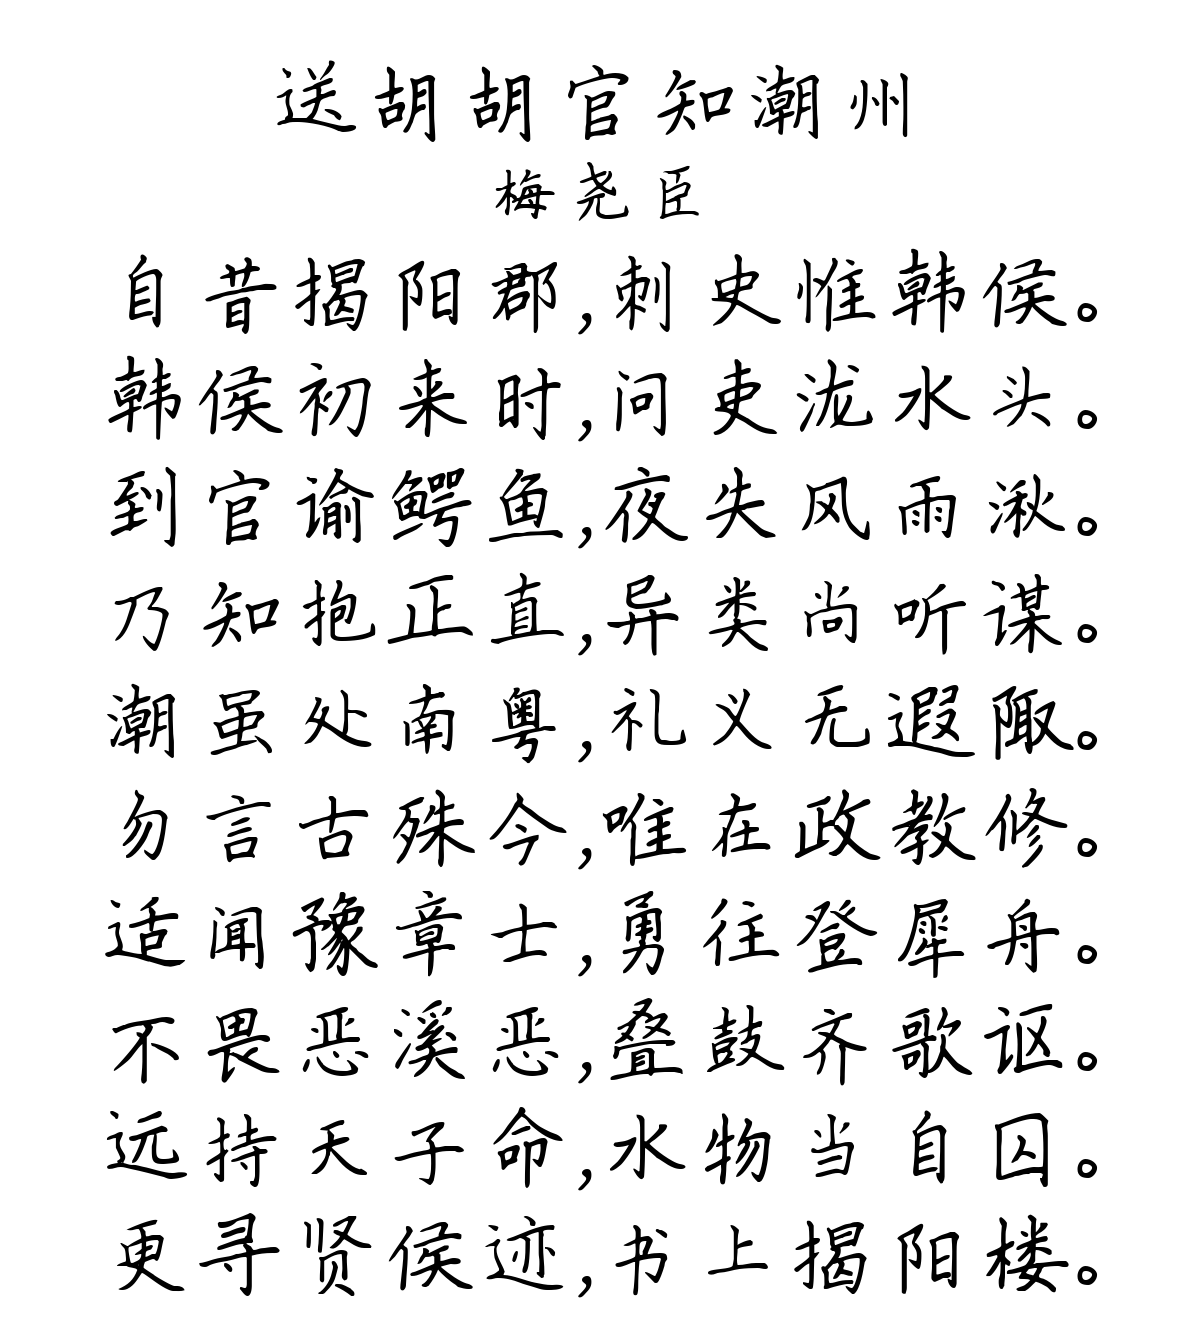 送胡胡官知潮州
梅尧臣
自昔揭阳郡,刺史惟韩侯。
韩侯初来时,问吏泷水头。
到官谕鳄鱼,夜失风雨湫。
乃知抱正直,异类尚听谋。
潮虽处南粤,礼义无遐陬。
勿言古殊今,唯在政教修。
适闻豫章士,勇往登犀舟。
不畏恶溪恶,叠鼓齐歌讴。
远持天子命,水物当自囚。
更寻贤侯迹,书上揭阳楼。